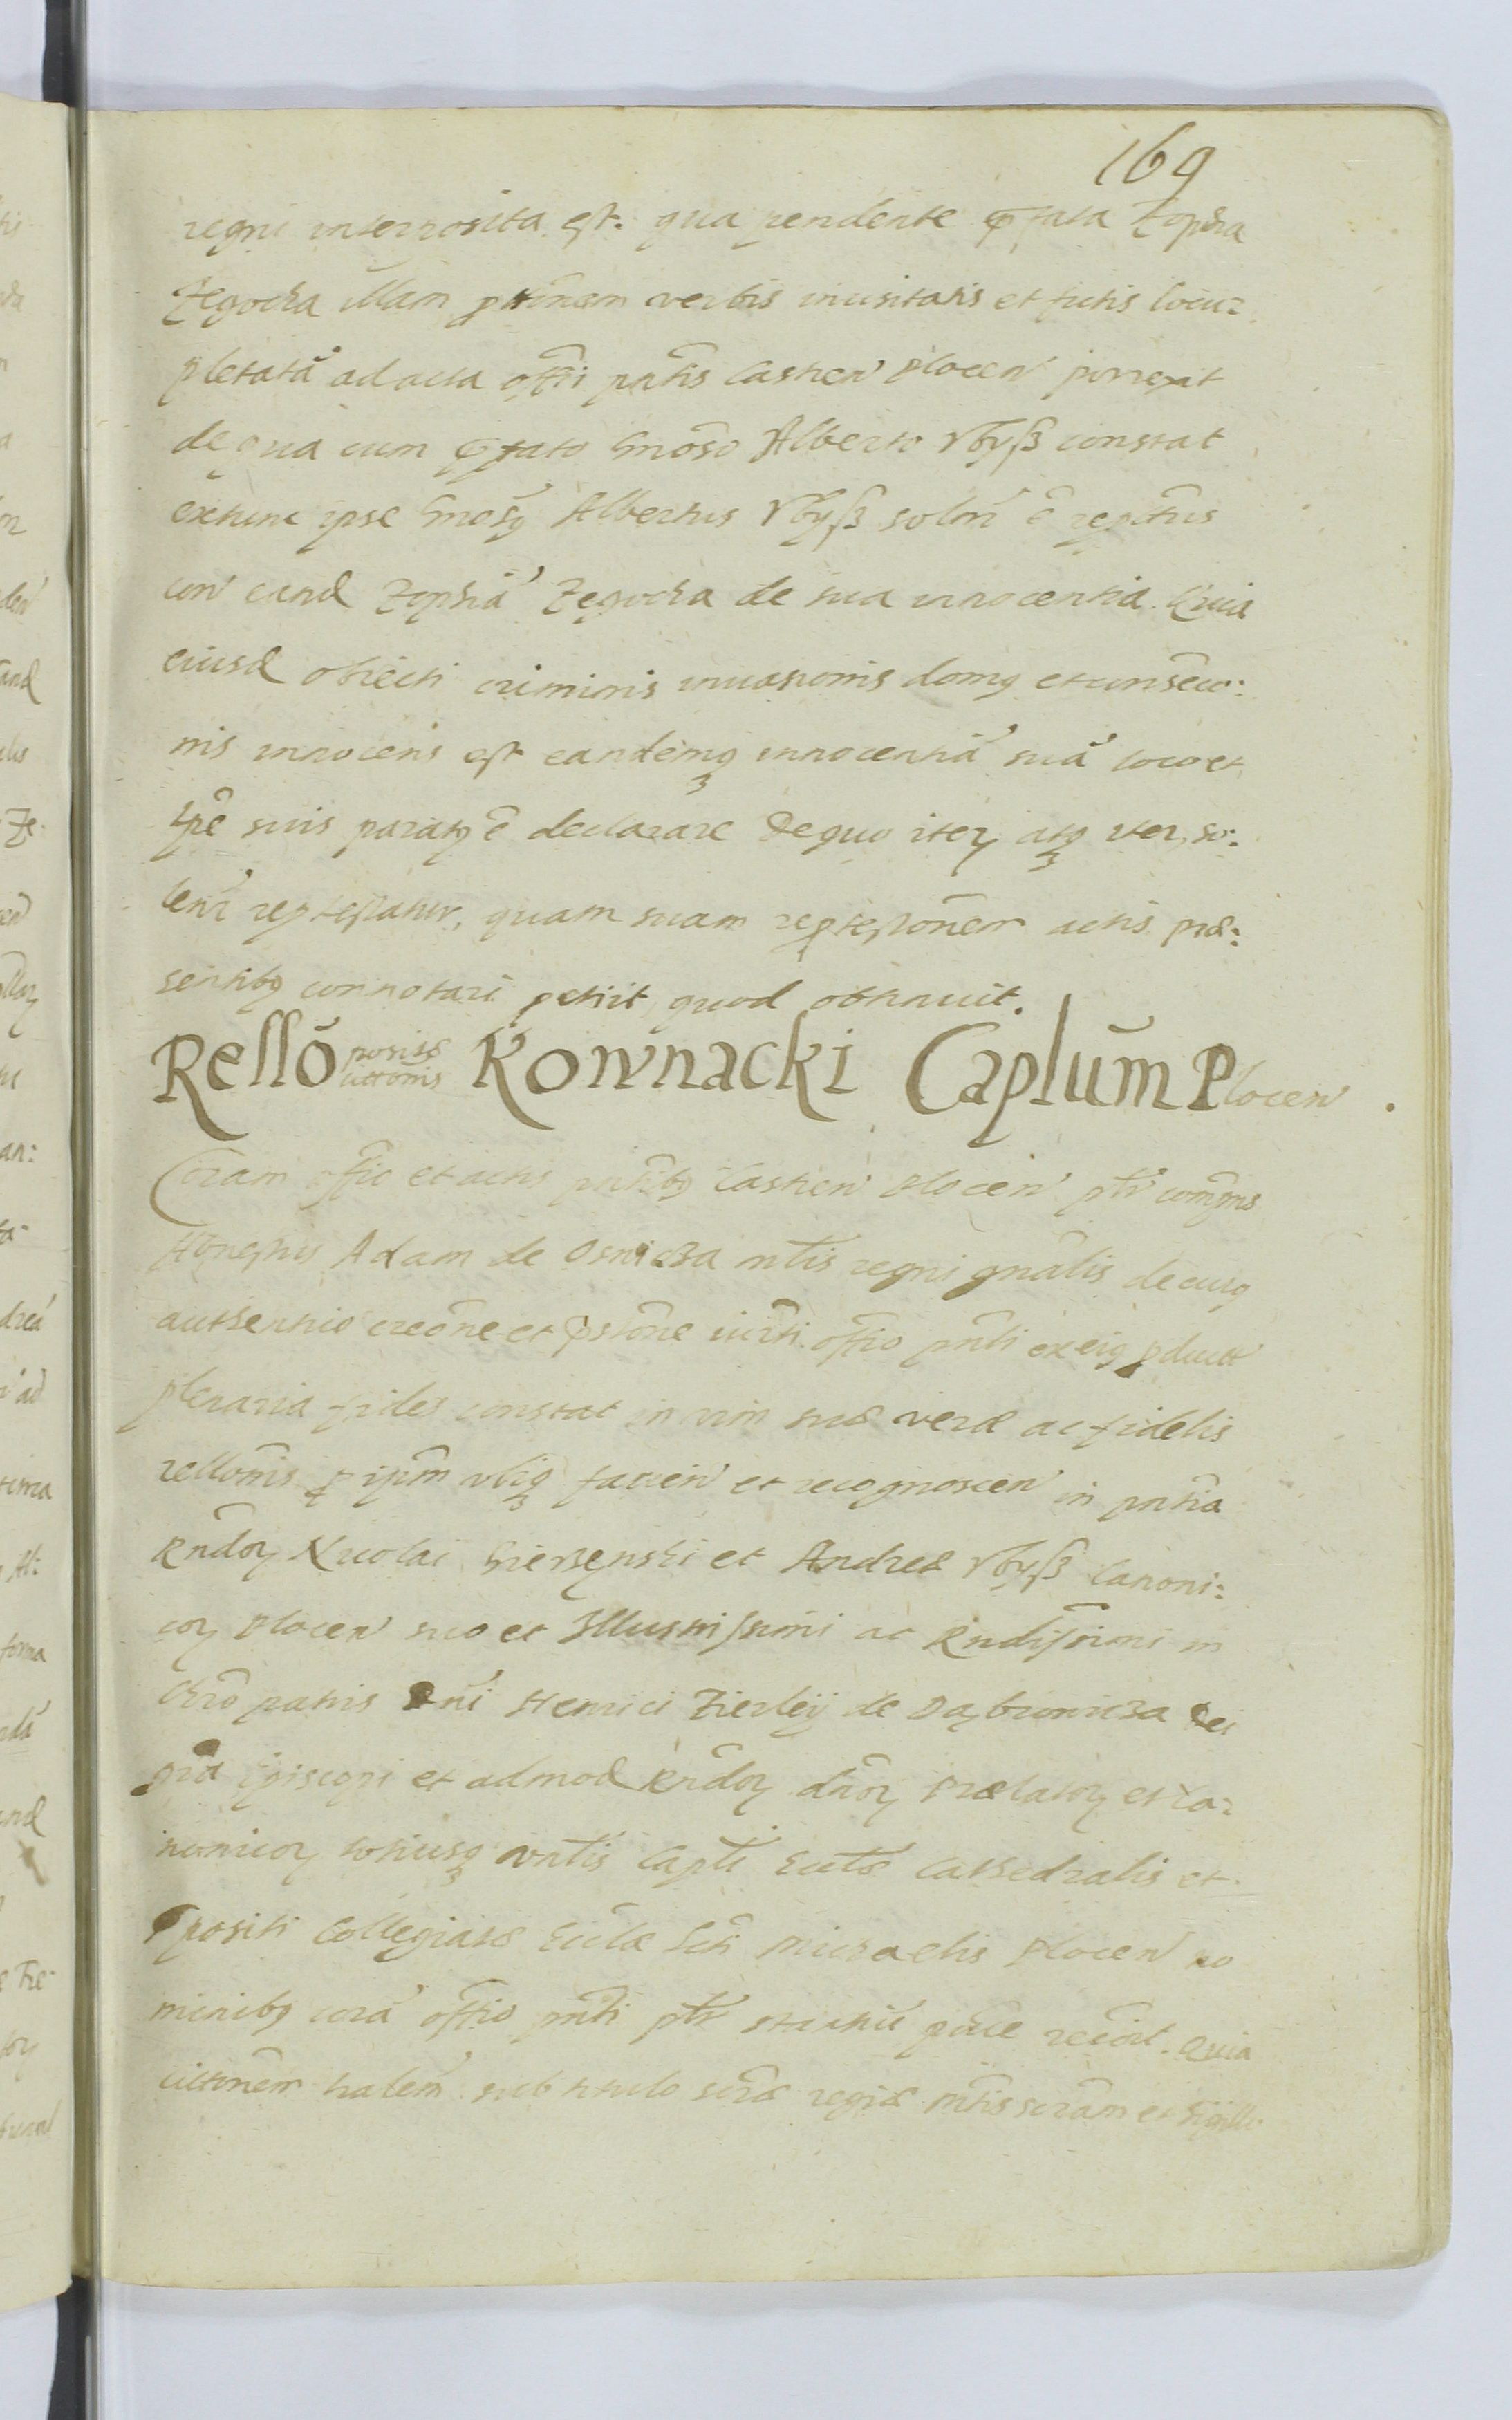 169
regni interposita est. qua pendente p̄fata Zophia
Zegocka illam ptīnem verbis inusitatis et fictis locu:
pletatā ad acta offīi pn̄tis Castren Plocen porrexit
de qua cum p̄fato Gnōso Alberto Vbyß constat
extunc ipse Gnosq Albertus Vbyß solnr̄ ē rep̄tus
con̄ eand Zophiā Zegocka de sua innocentia. Quia
eiusd obiecti criminis inuasionis domq et consēcu:
nis innocens est eandemq innocentiā suā loco et
tp̄e suis paratq ē declarare De quo iter atq iter, so:
lenr̄ reptestatur, quam suam reptestōnem actis præ:
sentibq connotari petiit, quod obtinuit.
Rellō positæ citt̄onis Kownacki Caplūm Plocen
Coram offīo et actis pn̄tibq Castren Plocen ptr̄ comp̄ns
Honestus Adam de Osnicza mt̄is regni gnālis de cuiq
authentico creōne et p̄stōne iur̄ti offīo pn̄ti ex eiq pductt
plenaria fides constat in vim suæ veræ ac fidelis
rellōnis p ipm̄ vbiq facien et recognoscen in pn̄tia
Rn̄dor Nicolai Gierzynski et Andreæ Vbyß Canoni:
cor Plocen suo et Illustrissimi ac Rndissimi in
Chr̄o patris Dn̄i Henrici Firleij de Dąbrowicza Dei
grā Episcopi et admod Rn̄dor dn̄or Prælator et Ca:
nonicor totiusq vnt̄is Caplī Eccl̄æ Cathedralis et
p̄positi Collegiatæ Eccl̄æ Sct̄i Michaelis Plocen no
minibq corā offīo pn̄ti ptr̄ stan̄ pub̄ce recōit. Quia
citt̄onem talem sub titulo Sc̄ræ regiæ mt̄is scrām et Sigillo